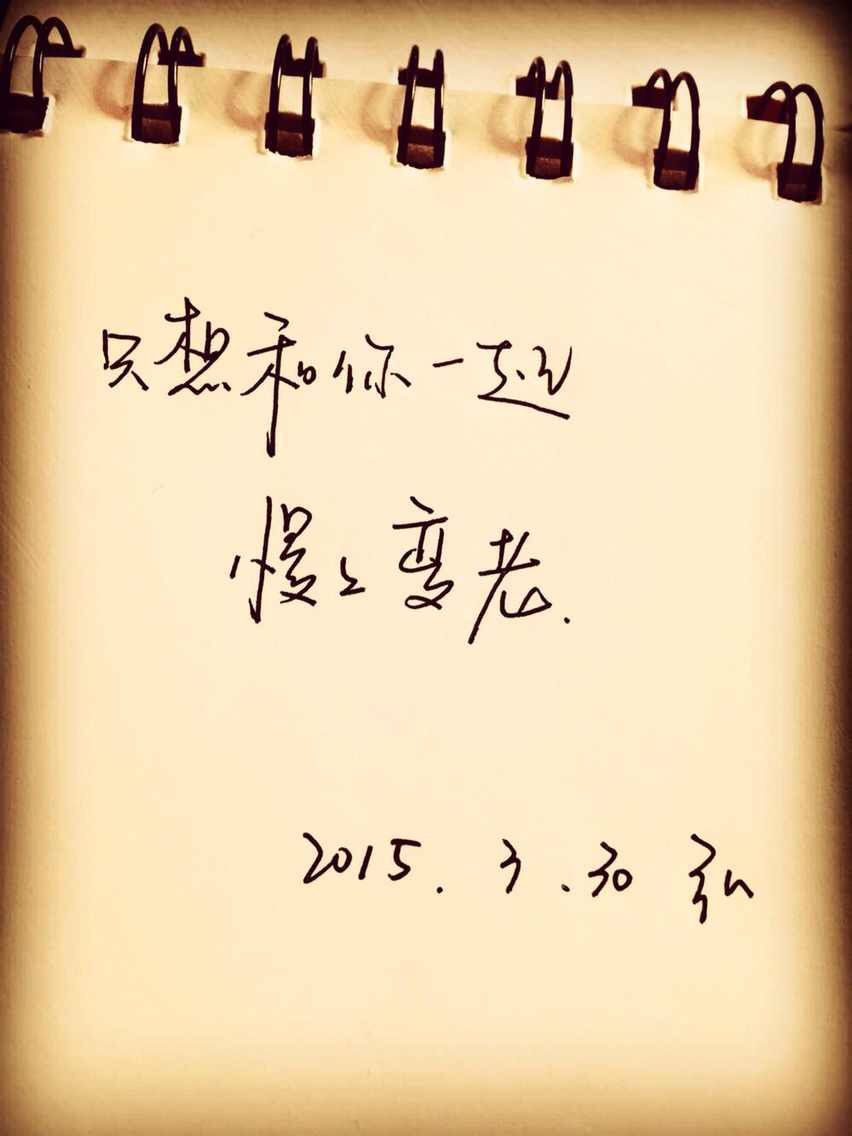 只想和你一起
慢々变老.
2015.3.30 弘